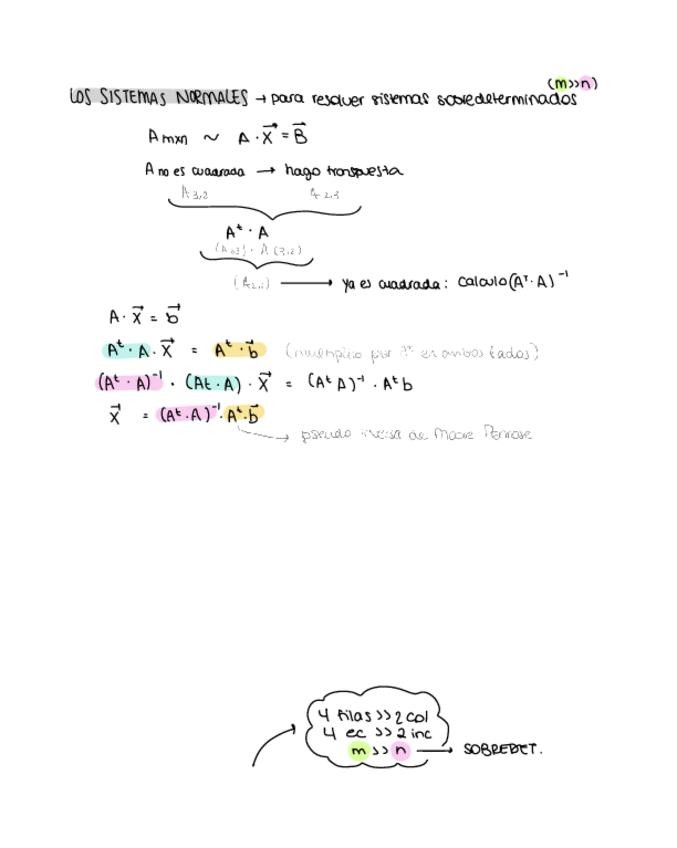 (m>>n)
LOS SISTEMAS NORMALES → para resolver sistemas sobredeterminados
Amxn ~ A · X⃗ = B⃗
A no es cuadrada → hago transpuesta
A 3,2 A 2,3
Aᵗ · A
(A 2,3) · A (3,2)
(A 2,2) → ya es cuadrada: calculo (Aᵀ · A)⁻¹
A · X⃗ = b⃗
Aᵗ · A · X⃗ = Aᵗ · b⃗ (multiplico por Aᵗ en ambos lados)
(Aᵗ · A)⁻¹ · (At · A) · X⃗ = (Aᵗ A)⁻¹ · Aᵗb
X⃗ = (Aᵗ · A)⁻¹ · Aᵗ · b⃗
→ pseudo inversa de Moore Penrose
4 filas >> 2 col
4 ec >> 2 inc
m >> n → SOBREDET.